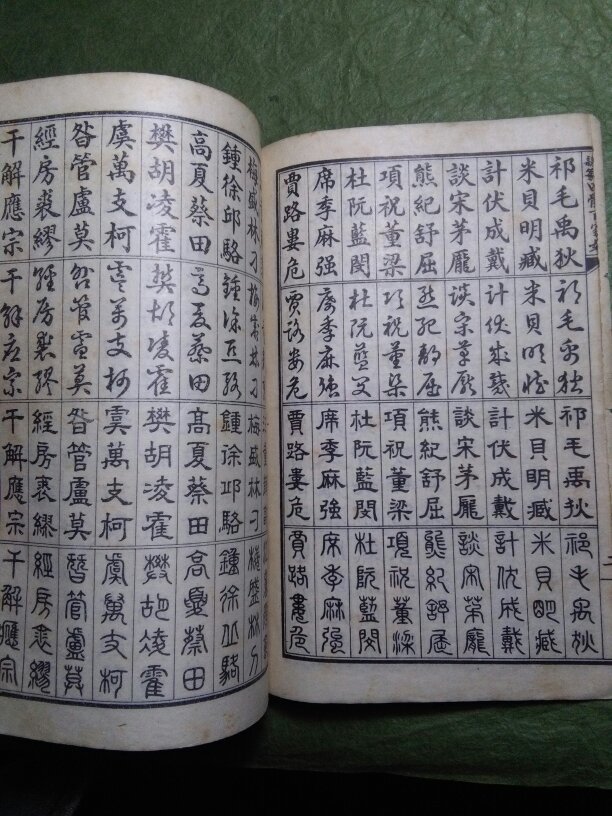 祁毛禹狄 祁毛禹狄 祁毛禹狄 祁毛禹狄
米貝明臧 米貝明臧 米貝明臧 米貝明臧
計伏成戴 計伏成戴 計伏成戴 計伏成戴
談宋茅龐 談宋茅龐 談宋茅龐 談宋茅龐
熊紀舒屈 熊紀舒屈 熊紀舒屈 熊紀舒屈
項祝董梁 項祝董梁 項祝董梁 項祝董梁
杜阮藍閔 杜阮藍閔 杜阮藍閔 杜阮藍閔
席季麻强 席季麻强 席季麻強 席季麻强
賈路婁危 賈路婁危 賈路婁危 賈路婁危
梅盛林刁 梅盛林刁 梅盛林刁 梅盛林刁
鍾徐邱駱 鍾徐邱駱 鍾徐邱駱 鍾徐丘駱
高夏蔡田 高夏蔡田 高夏蔡田 高夏蔡田
樊胡凌霍 樊胡凌霍 樊胡凌霍 樊胡凌霍
虞萬支柯 虞萬支柯 虞萬支柯 虞萬支柯
昝管盧莫 昝管盧莫 昝管盧莫 昝管盧莫
經房裘繆 經房裘繆 經房裘繆 經房裘繆
干解應宗 干解應宗 干解應宗 干解應宗